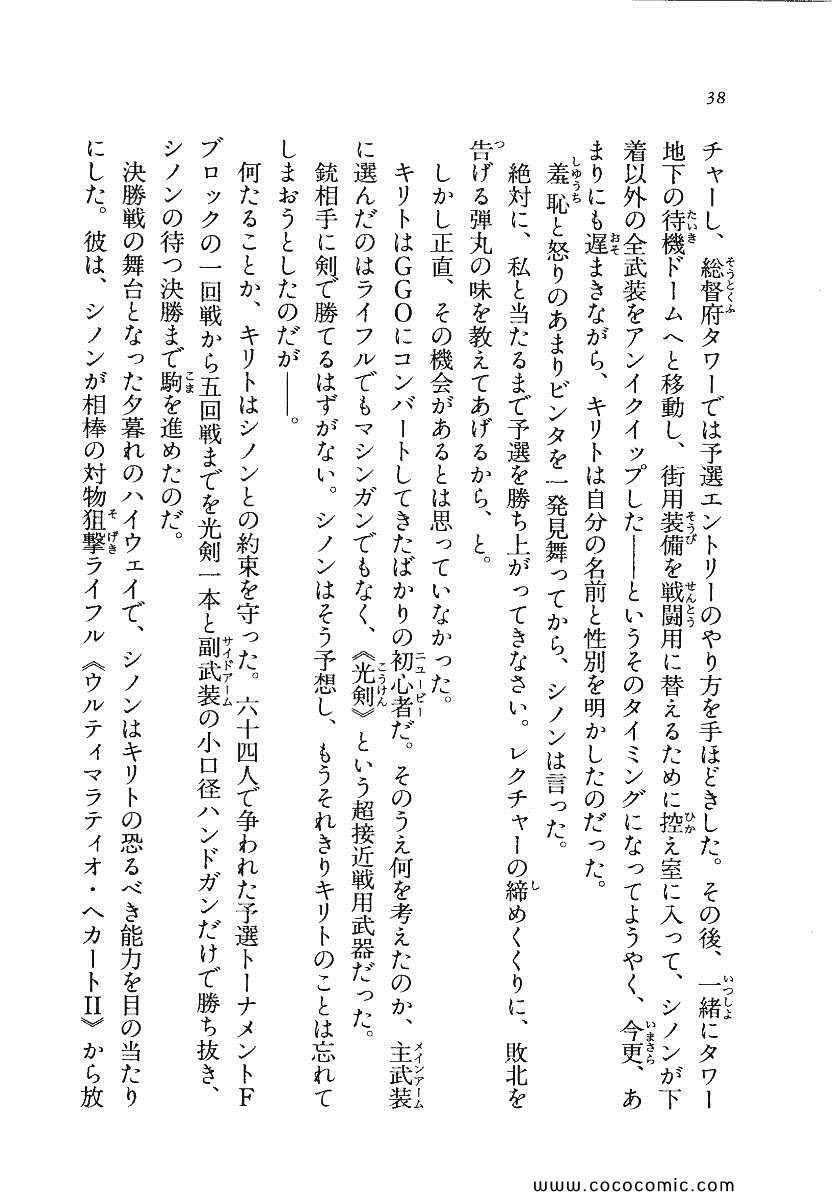 38
チャーし、総督府タワーでは予選エントリーのやり方を手ほどきした。その後、一緒にタワー
地下の待機ドームへと移動し、街用装備を戦闘用に替えるために控え室に入って、シノンが下
着以外の全武装をアンイクイップした――というそのタイミングになってようやく、今更、あ
まりにも遅まきながら、キリトは自分の名前と性別を明かしたのだった。
羞恥と怒りのあまりビンタを一発見舞ってから、シノンは言った。
絶対に、私と当たるまで予選を勝ち上がってきなさい。レクチャーの締めくくりに、敗北を
告げる弾丸の味を教えてあげるから、と。
しかし正直、その機会があるとは思っていなかった。
キリトはGGOにコンバートしてきたばかりの初心者だ。そのうえ何を考えたのか、主武装
に選んだのはライフルでもマシンガンでもなく、《光剣》という超接近戦用武器だった。
銃相手に剣で勝てるはずがない。シノンはそう予想し、もうそれきりキリトのことは忘れて
しまおうとしたのだが――。
何たることか、キリトはシノンとの約束を守った。六十四人で争われた予選トーナメントF
ブロックの一回戦から五回戦までを光剣一本と副武装の小口径ハンドガンだけで勝ち抜き、
シノンの待つ決勝まで駒を進めたのだ。
決勝戦の舞台となった夕暮れのハイウェイで、シノンはキリトの恐るべき能力を目の当たり
にした。彼は、シノンが相棒の対物狙撃ライフル《ウルティマラティオ・ヘカートII》から放
www.cococomic.com